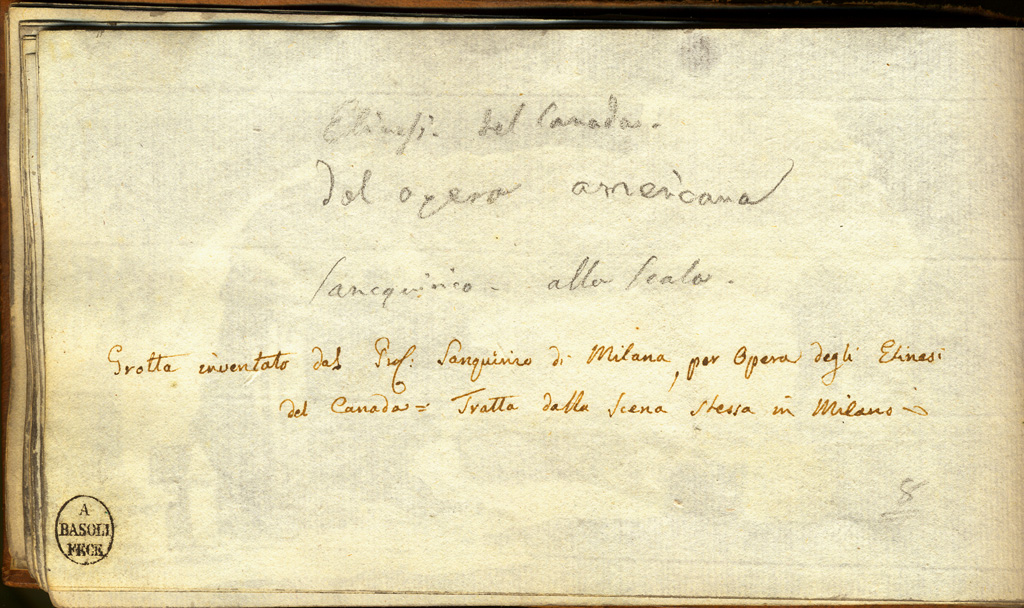 Elinesi. del Canada.
Del opera americana
Sancquirico - alla Scala.
Grotta inventato dal Prof: Sanquirico di Milana, per Opera degli Elinesi
del Canada = Tratta dalla Scena stessa in Milano
8
A
BASOLI
FECE